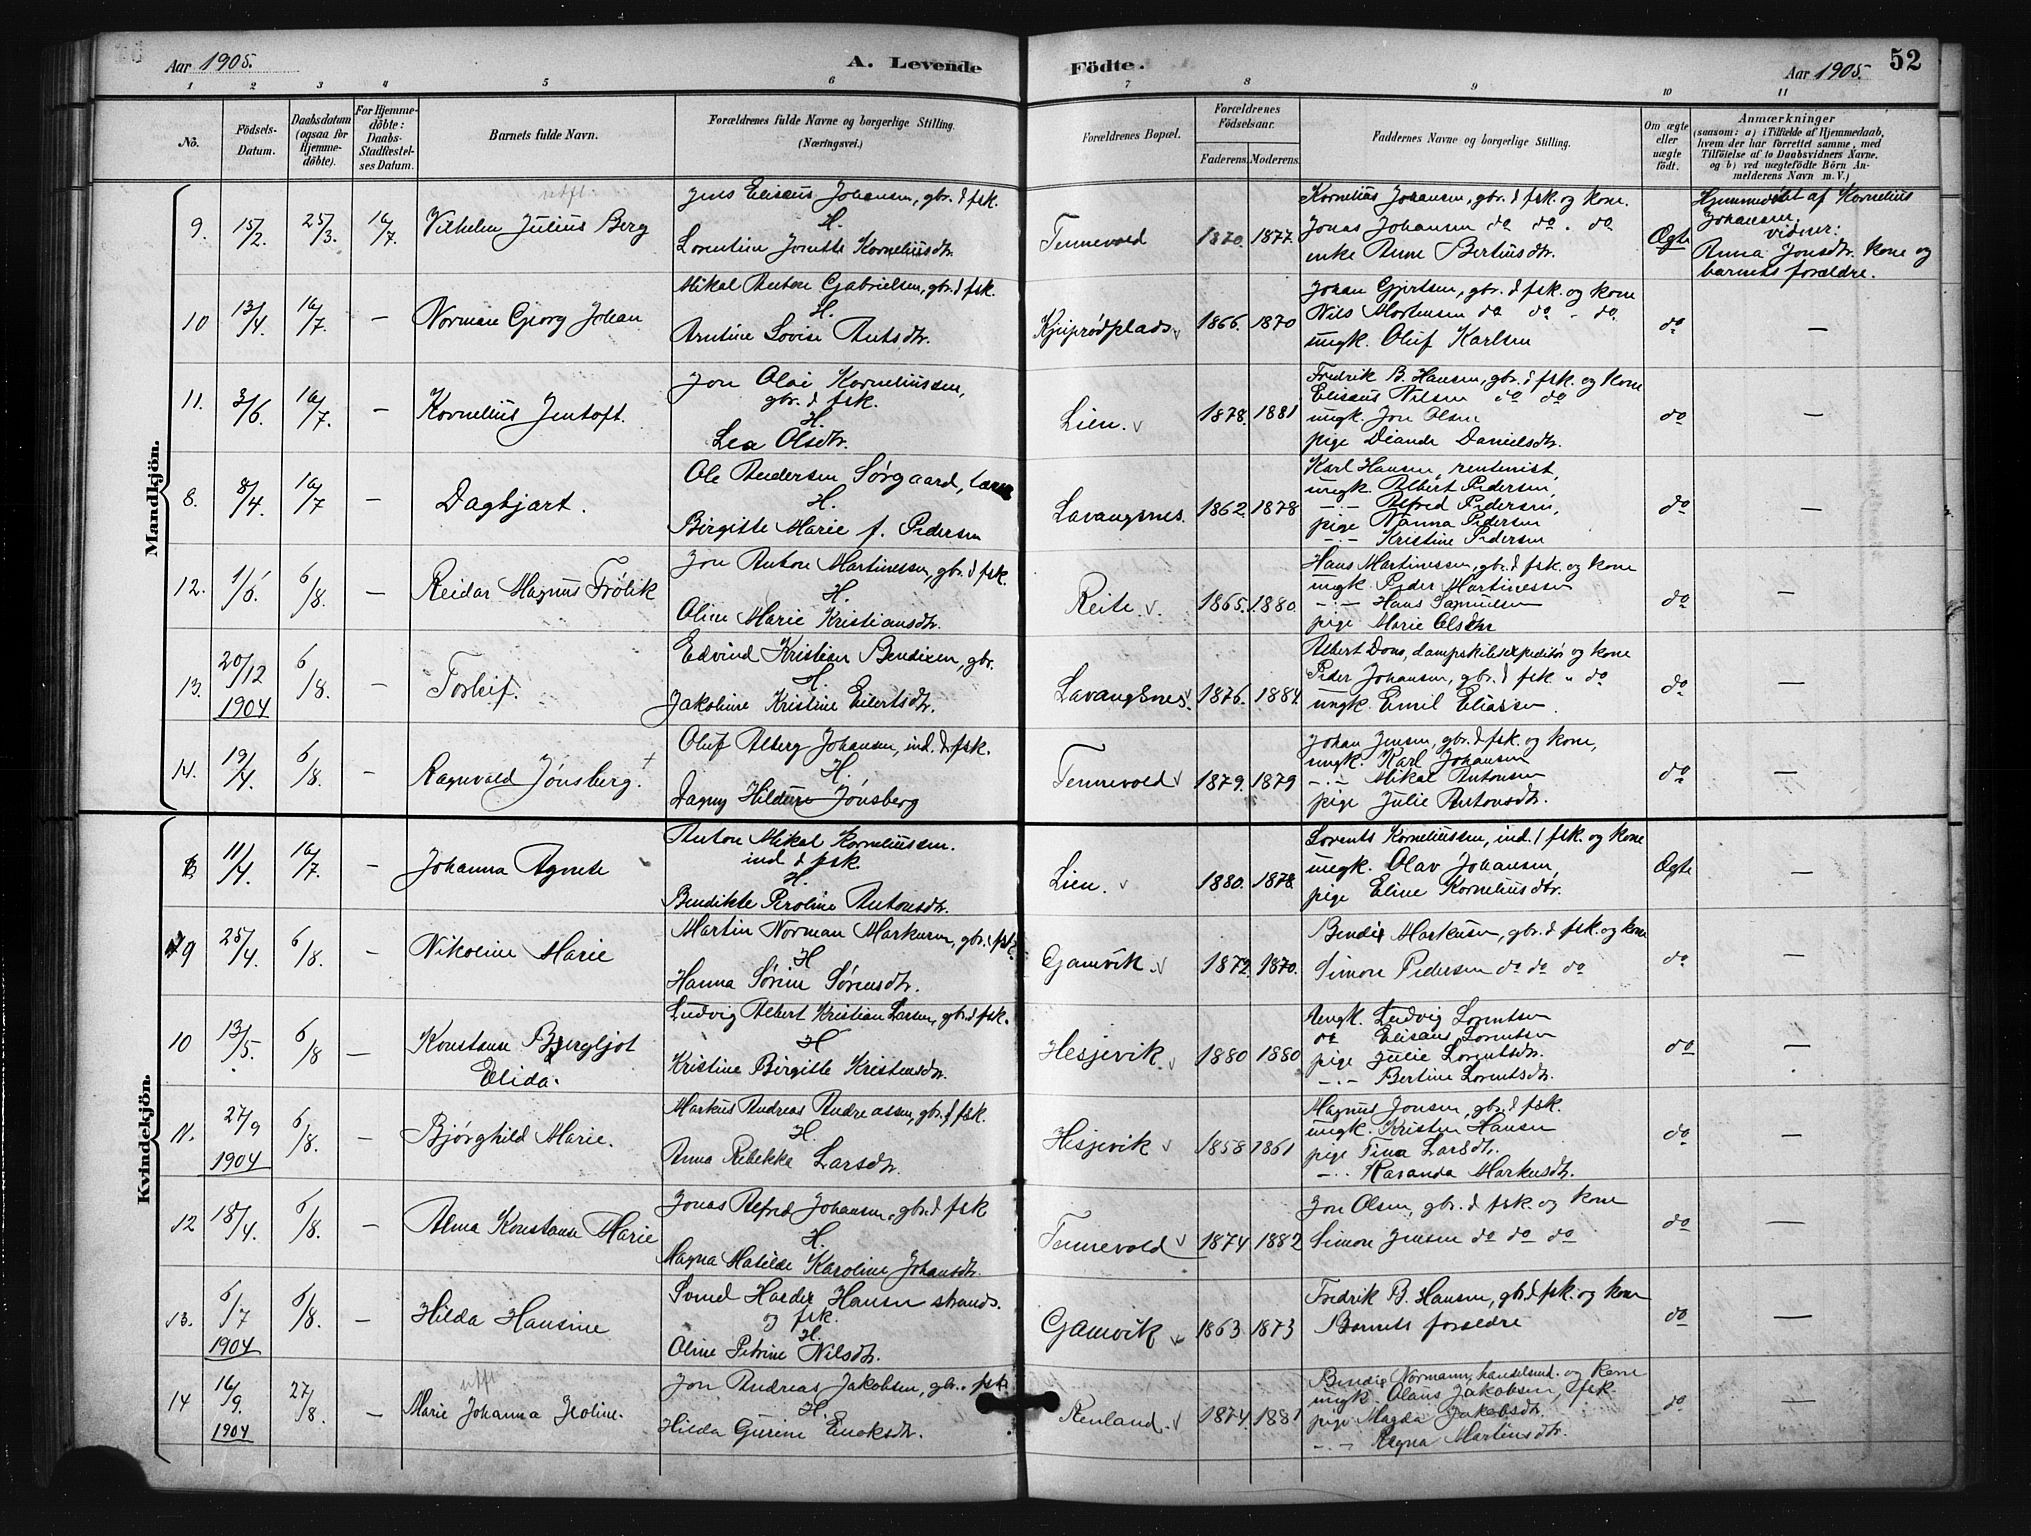 Aar 1905.
A. Levende
Födte.
Aar 1905.
52
1 2 3 4 5 6 7 8 9 10 11
No.
Födsels-Datum.
Daabsdatum (ogsaa for Hjemme-döbte).
For Hjemme-döbte: Daabs-Stadfæstel-ses Datum.
Barnets fulde Navn.
Forældrenes fulde Navne og borgerlige Stilling. (Næringsvei.)
Forældrenes Bopæl.
Forældrenes Födselsaar.
Faderens. Moderens.
Faddernes Navne og borgerlige Stilling.
Om ægte eller uægte födt.
Anmærkninger
(saasom: a) i Tilfælde af Hjemmedaab, hvem der har forrettet samme, med Tilföielse af to Daabsvidners Navne, og b) ved uægtefödte Börn An-melderens Navn m. V.)
Mandkjön.
utfl.
9. 15/2. 25/3. 16/7. Vilhelm Julius Berg
Jens Elisæus Johansen, gbr. & fsk.
H.
Lorentine Jonette Korneliusdtr.
Tennevold 1870. 1877.
Kornelius Johansen, gbr. & fsk og kone.
Jonas Johansen do do. do
enke Anne Bertinsdtr.
Ægte
Hjemmedøbt af Kornelius
Johansen.
vidner:
Anna Jonsdtr. kone og
barnets forældre.
10 13/4. 16/7. — Norman Georg Johan
Mikal Anton Gabrielsen, gbr. & fsk.
H.
Arntine Lovise Antsdtr.
1866. 1870
Johan Gjertsen, gbr. & fsk. og kone
Nils Mortensen do do - do
ungk. Oluf Karlsen
do —
11. 3/6. 16/7. — Kornelius Jentoft.
Jon Olai Korneliussen,
gbr. & fsk.
H.
Lea Olsdtr.
Lien. v 1878. 1881
Fredrik B. Hansen, gbr. & fsk. og kone
Elisæus Nilsen do do
ungk. Jon Olsen
pige Deande Danielsdtr.
do —
8. 8/4. 16/7 — Dagbjart.
Ole Andersen Sørgaard,
H.
Birgitte Marie f. Pedersen
Lavangsnes. 1862. 1878
Karl Hansen, rentenist,
ungk. Albert Pedersen,
—·— Alfred Pedersen,
pige Nanna Pedersen
—·— Kristine Pedersen
do —
12. 1/6. 6/8. — Reidar Magnus Frølik
Jon Anton Martinessen, gbr. & fsk.
H.
Oline Marie Kristiansdtr.
Reite. v. 1865. 1880.
Hans Martinessen, gbr. & fsk. og kone
ungk. Peder Martinessen
—·— Hans Samuelsen
pige Marie Olsdtr
do —
13. 20/12 1904 6/8. — Torleif.
Edvind Kristian Bendixen, gbr.
H.
Jakobine Kristine Eilertsdtr.
Lavangsnes. v 1876. 1884.
Albert Dons, dampskibsexpeditør og kone
Peder Johansen, gbr. & fsk " do
ungk. Emil Eliassen.
do —
14. 19/4. 6/8. — Ragnvald Jønsberg. +
Oluf Alberg Johansen, ind. & fsk.
H.
Dagny Hildure Jønsberg
Tennevold v 1879. 1879
Johan Jensen, gbr. & fsk. og kone,
ungk. Karl Johansen
—·— Mikal Antonsen
pige Julie Antonsdtr.
do —
Kvindekjön.
8 11/4. 16/7. — Johanna Agnete
Anton Mikal Korneliussen.
ind. & fsk.
H.
Bendikte Peroline Antonsdtr.
Lien. v 1880. 1878.
Lorents Korneliussen, ind. & fsk. og kone
ungk. Olav Johansen,
pige Eline Korneliusdtr.
Ægte —
9 25/4. 6/8. — Nikoline Marie
Martin Norman Markusen, gbr. & fsk.
H
Hanna Sørine Sørensdtr.
Gamvik. v 1872. 1870.
Bendix Markusen, gbr. & fsk. og kone
Simon Pedersen do do do
do —
10 13/5. 6/8 — Konstanse Bergljot
Elida.
Ludvig Albert Kristian Larsen, gbr. & fsk.
H
Kristine Birgitte Kristensdtr.
Hesjevik. v 1880 1880
Ungk. Ludvig Lorentsen
do Elisæus Lorentsen
pige Julie Lorentsdtr.
—·— Bertine Lorentsdtr.
do —
11. 27/9 1904 6/8. — Bjørghild Marie.
Markus Andreas Andreassen, gbr. & fsk.
H.
Anna Rebekka Larsdtr.
Hesjevik. v 1858 1861
Magnus Jonsen, gbr. & fsk.
ungk. Kristen Hansen
pige Tina Larsdtr.
—·— Karanda Markusdtr.
do —
12 18/4. 6/8. — Alma Konstanse Marie
Jonas Alfred Johansen, gbr. & fsk
H.
Magna Matilde Karoline Johansdtr.
Tennevold v 1874 1882
Jon Olsen, gbr. & fsk. og kone
Simon Jensen do do do
do —
13. 6/7 1904 6/8. — Hilda Hansine
Svend Harder Hansen strands.
og fsk.
H.
Oline Petrine Nilsdtr.
Gamvik v 1863 1873
Fredrik B. Hansen, gbr. & fsk. og kone
Barnets forældre
do —
utfl
14 16/9. 1904 27/8. — Marie Johanna
Jon Andreas Jakobsen, gbr. & fsk
H.
Hilda Gurine Enoksdtr.
Renland. v 1874. 1881
Bendix Normann, handelsmd. og kone
ungk. Olaus Jakobsen, fsk.
pige Magda Jakobsdtr.
—·— Ragna Martinsdtr.
do —